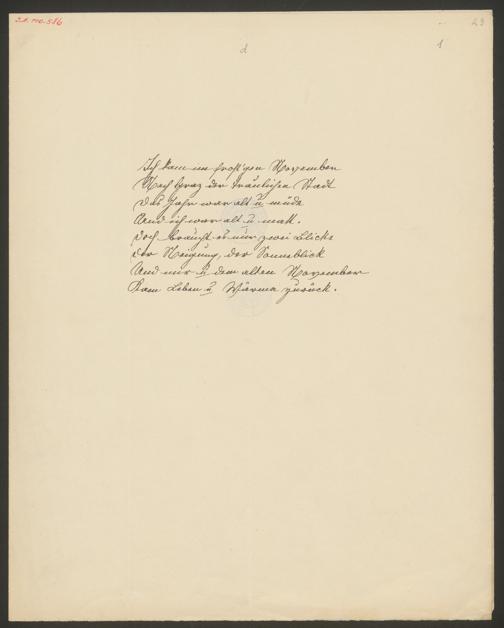 I.N. 110.586
23
d
1
Ich kam im frost'gen November
Nach Graz der traulichen Stadt
Das Jahr war alt u müde
Und ich war alt u matt.
Doch braucht es nur zwei Blicke
Der Neigung, der Sonneblick
Und mir u dem alten November
Kam Leben u Wärme zurück.